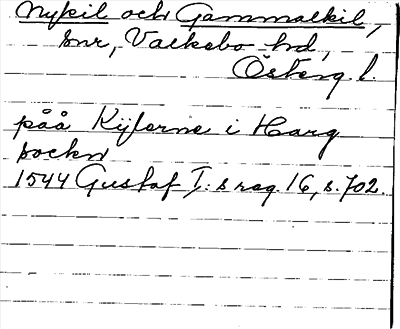 Nykil och Gammalkil,
snr, Valkebo hd,
Österg. l.
påå Kijlerne i Harg
sockn
1544 Gustaf I:s reg. 16, s. 702